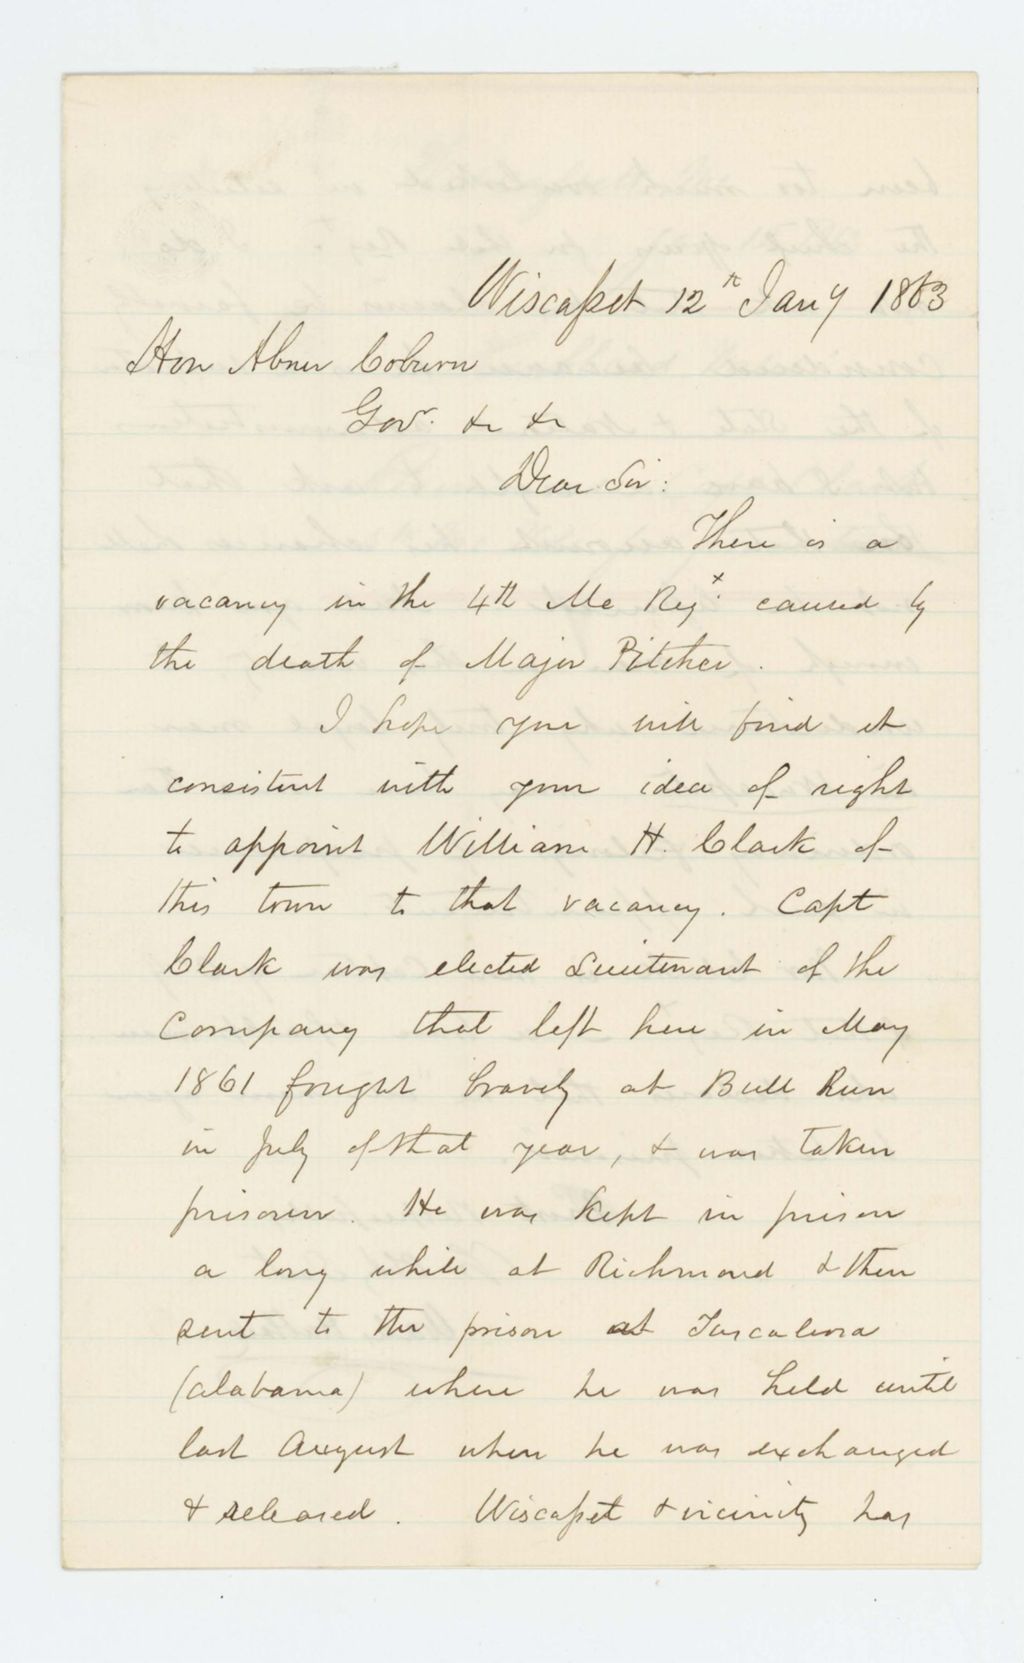 Wiscasset 12th Jany 1863
Hon Abner Coburn
Govr. &c &c
Dear Sir:
There is a
vacancy in the 4th Me Regt. caused by
the death of Major Pitcher.
I hope you will find it
consistent with your idea of right
to appoint William H. Clark of
this town to that vacancy. Capt
Clark was elected Lieutenant of the
Company that left here in May
1861 fought bravely at Bull Run
in July of that year, & was taken
prisoner. He was kept in prison
a long while at Richmond & then
sent to the prison at Tuscalusa
(Alabama) where he was held until
last August when he was exchanged
& released. Wiscasset & vicinity has